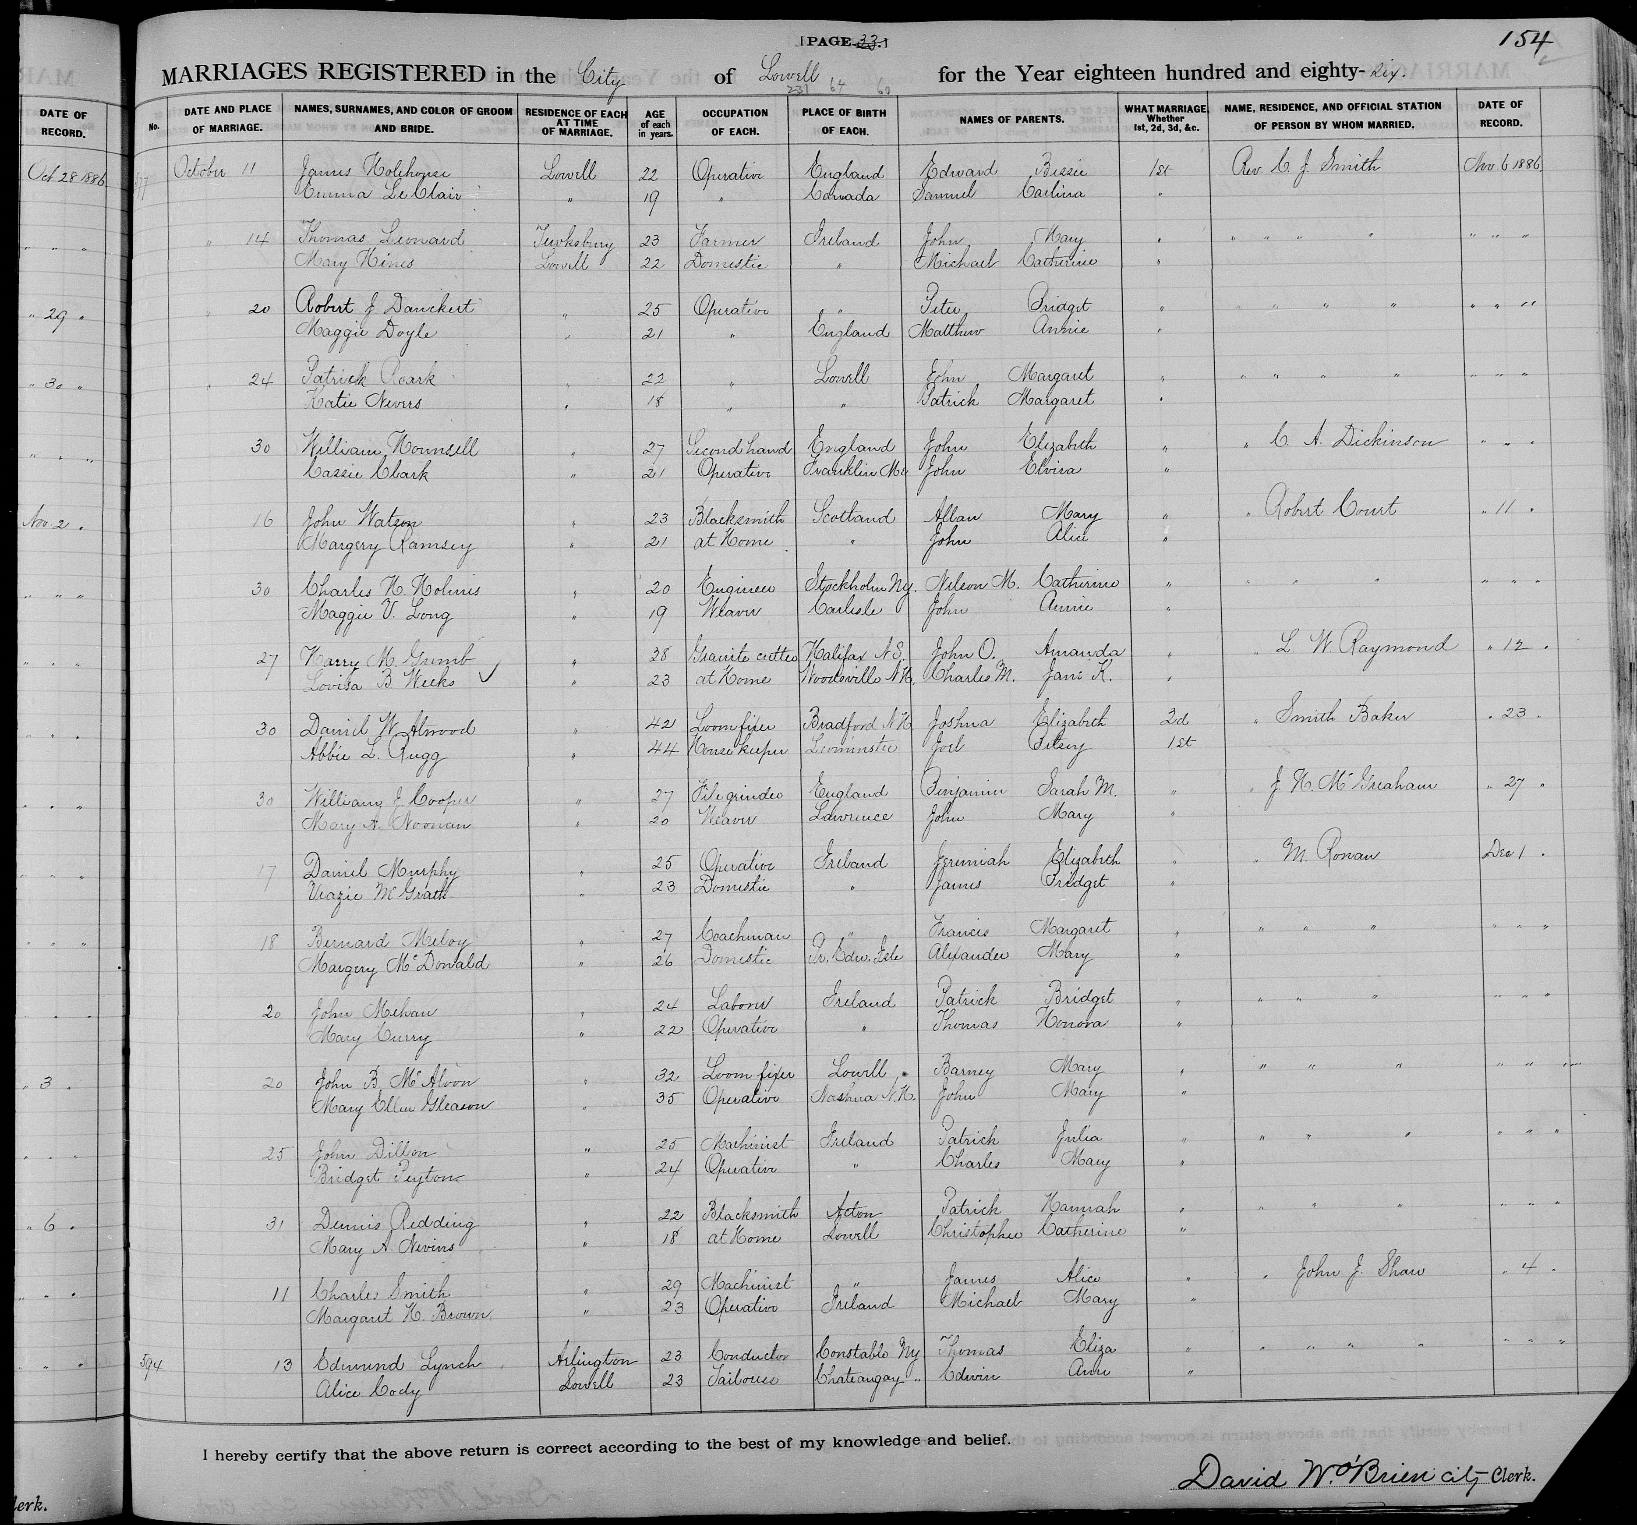 [PAGE 33.]
154
MARRIAGES REGISTERED in the City of Lowell for the Year eighteen hundred and eighty-six.
231 64 60
DATE OF RECORD.
No. DATE AND PLACE OF MARRIAGE. NAMES, SURNAMES, AND COLOR OF GROOM AND BRIDE. RESIDENCE OF EACH AT TIME OF MARRIAGE. AGE of each in years. OCCUPATION OF EACH. PLACE OF BIRTH OF EACH. NAMES OF PARENTS. WHAT MARRIAGE, Whether 1st, 2d, 3d, &c. NAME, RESIDENCE, AND OFFICIAL STATION OF PERSON BY WHOM MARRIED. DATE OF RECORD.
Oct 28 1886 October 11 James Holihouse Lowell 22 Operative England Edward Bissie 1st Rev. C. J. Smith Nov 6 1886
Emma Le Clair " 19 " Canada Samuel Carlina "
" " " " 14 Thomas Leonard Tewksbury 23 Farmer Ireland John Mary " " " " " " " "
Mary Hines Lowell 22 Domestic " Michael Catherine "
" 29 " 20 Robert J Danckert " 25 Operative " Peter Bridget " " " " " " " "
Maggie Doyle " 21 " England Matthew Annie "
" 30 " " 24 Patrick Roark " 22 " Lowell John Margaret " " " " " " " "
Katie Nevers " 18 " " Patrick Margaret "
" " " 30 William Hounsell " 27 Second hand England John Elizabeth " " C. A. Dickinson " " "
Cassie Clark " 21 Operative Franklin Me John Elvira "
Nov 2 " 16 John Watson " 23 Blacksmith Scotland Allan Mary " " Robert Court " 11 "
Margery Ramsey " 21 at Home " John Alice "
" " " 30 Charles H. Holmes " 20 Engineer Stockholm Ny. Nelson M. Catherine " " " " " " "
Maggie V. Long " 19 Weaver Carlisle John Annie "
" " " 27 Harry M. Grumb " 38 Granite cutter Halifax N S. John O. Amanda " " L W. Raymond " 12 "
Lovisa B Weeks ✓ " 23 at Home Woodsville N H. Charles M. Jane K. "
" " " 30 Daniel W. Atwood " 42 Loomfixer Bradford N H Joshua Elizabeth 2d " Smith Baker " 23 "
Abbie L. Rugg " 44 House keeper Leominster Joel Betsey 1st
" " " 30 William J. Cooper " 27 File grinder England Benjamin Sarah M. " " J. H. McGreaham " 27 "
Mary A. Noonan " 20 Weaver Lawrence John Mary "
" " " 17 Daniel Murphy " 25 Operative Ireland Jeremiah Elizabeth " " M. Ronan Dec 1 "
McGrath " 23 Domestic " James Bridget "
" " " 18 Bernard Meloy " 27 Coachman " Francis Margaret " " " " " " "
Margery McDonald " 26 Domestic Pr. Edw. Isle Alexander Mary "
" " 20 John Mehan " 24 Laborer Ireland Patrick Bridget " " " " " " "
Mary Curry " 22 Operative " Thomas Honora "
" 3 " 20 John B. McAloon " 32 Loom fixer Lowell Barney Mary " " " " " " "
Mary Ellen Gleason " 35 Operative Nashua N.H. John Mary "
" " " 25 John Dillon " 25 Machinist Ireland Patrick Julia " " " " " " "
Bridget Peyton " 24 Operative " Charles Mary "
" 6 " 31 Dennis Redding " 22 Blacksmith Acton Patrick Hannah " " " " " " "
Mary A. Nevins " 18 at Home Lowell Christopher Catherine "
" " " 11 Charles Smith " 29 Machinist " James Alice " " John J. Shaw " 4 "
Margaret H. Brown " 23 Operative Ireland Michael Mary "
" " " 594 13 Edmund Lynch Arlington 23 Conductor Constable Ny Thomas Eliza " " " " " " " "
Alice Cody Lowell 23 Tailoress Chateaugay " Edwin Ann "
I hereby certify that the above return is correct according to the best of my knowledge and belief.
David W. O'Brien City Clerk.
lerk.